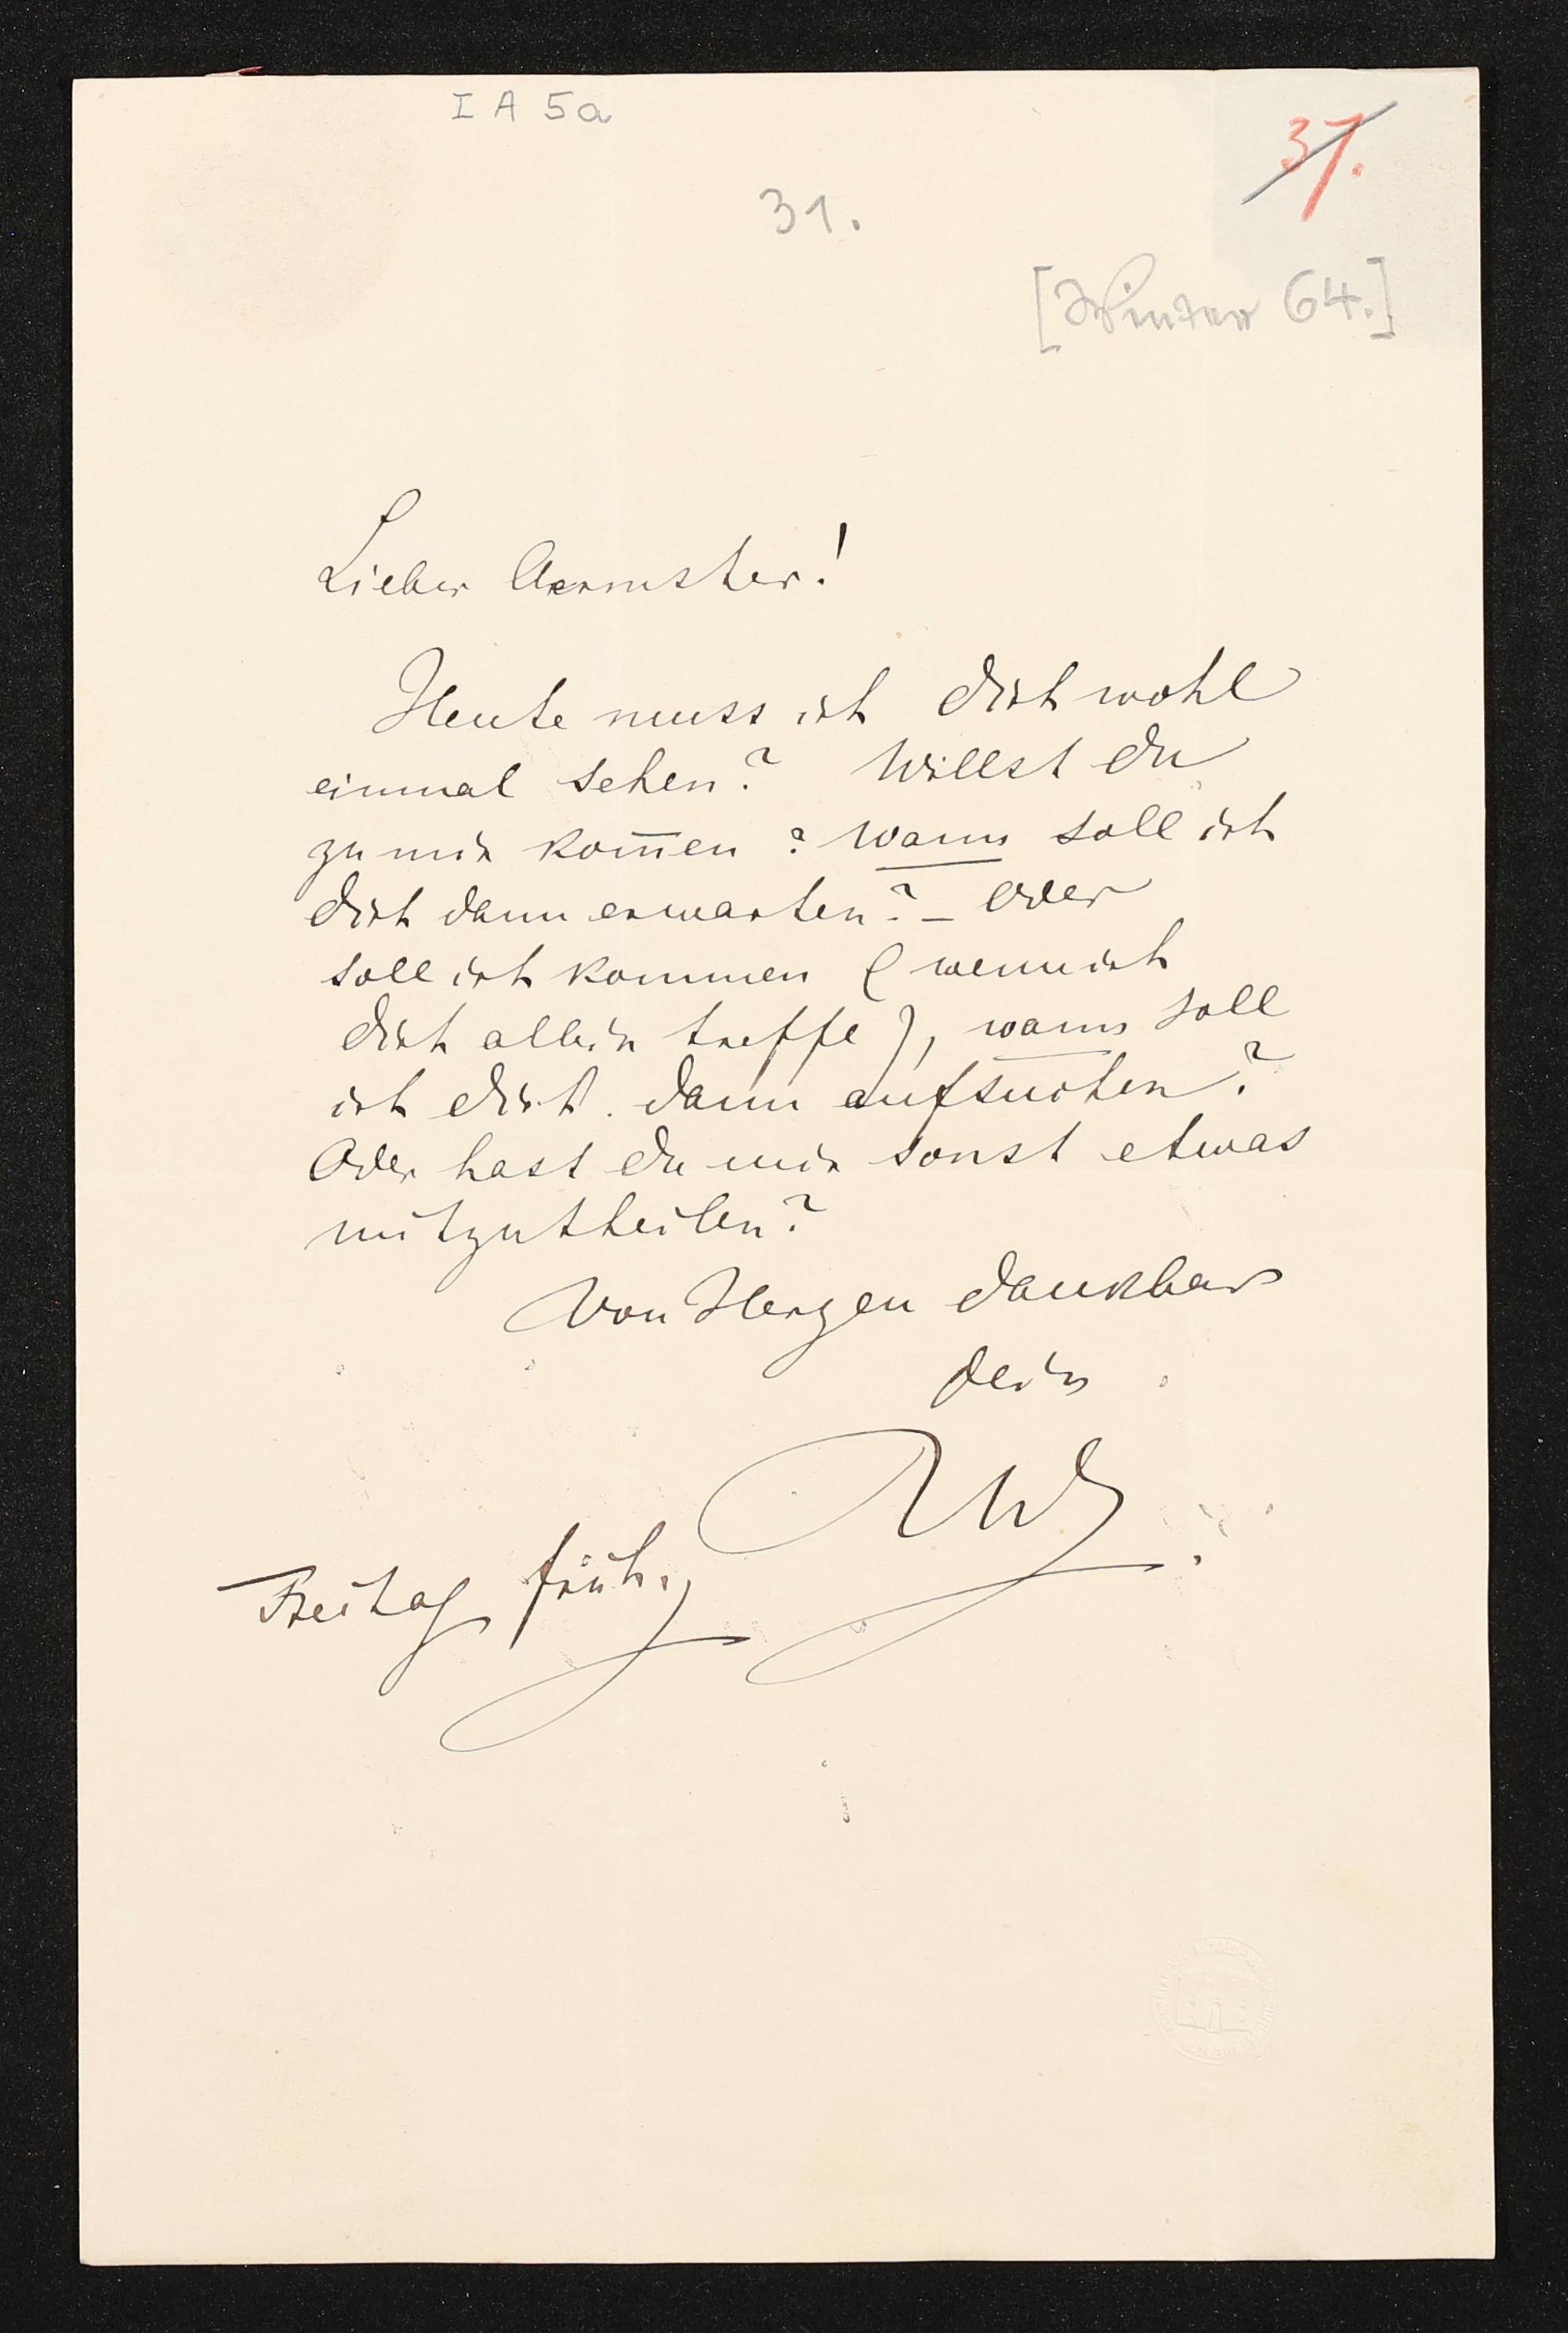 I A 5a
37.
31.
[Winter 64.]
Lieber Aermster!
Heute muss ich dich wohl
einmal sehen? Willst du
zu mir kom̄en? Wann soll ich
dich dann erwarten? – Oder
soll ich kommen (wenn ich
dich allein treffe), wann soll
ich dich dann aufsuchen?
Oder hast du mir sonst etwas
mitzutheilen?
Von Herzen dankbar
Dein
RW.
Freitag früh.